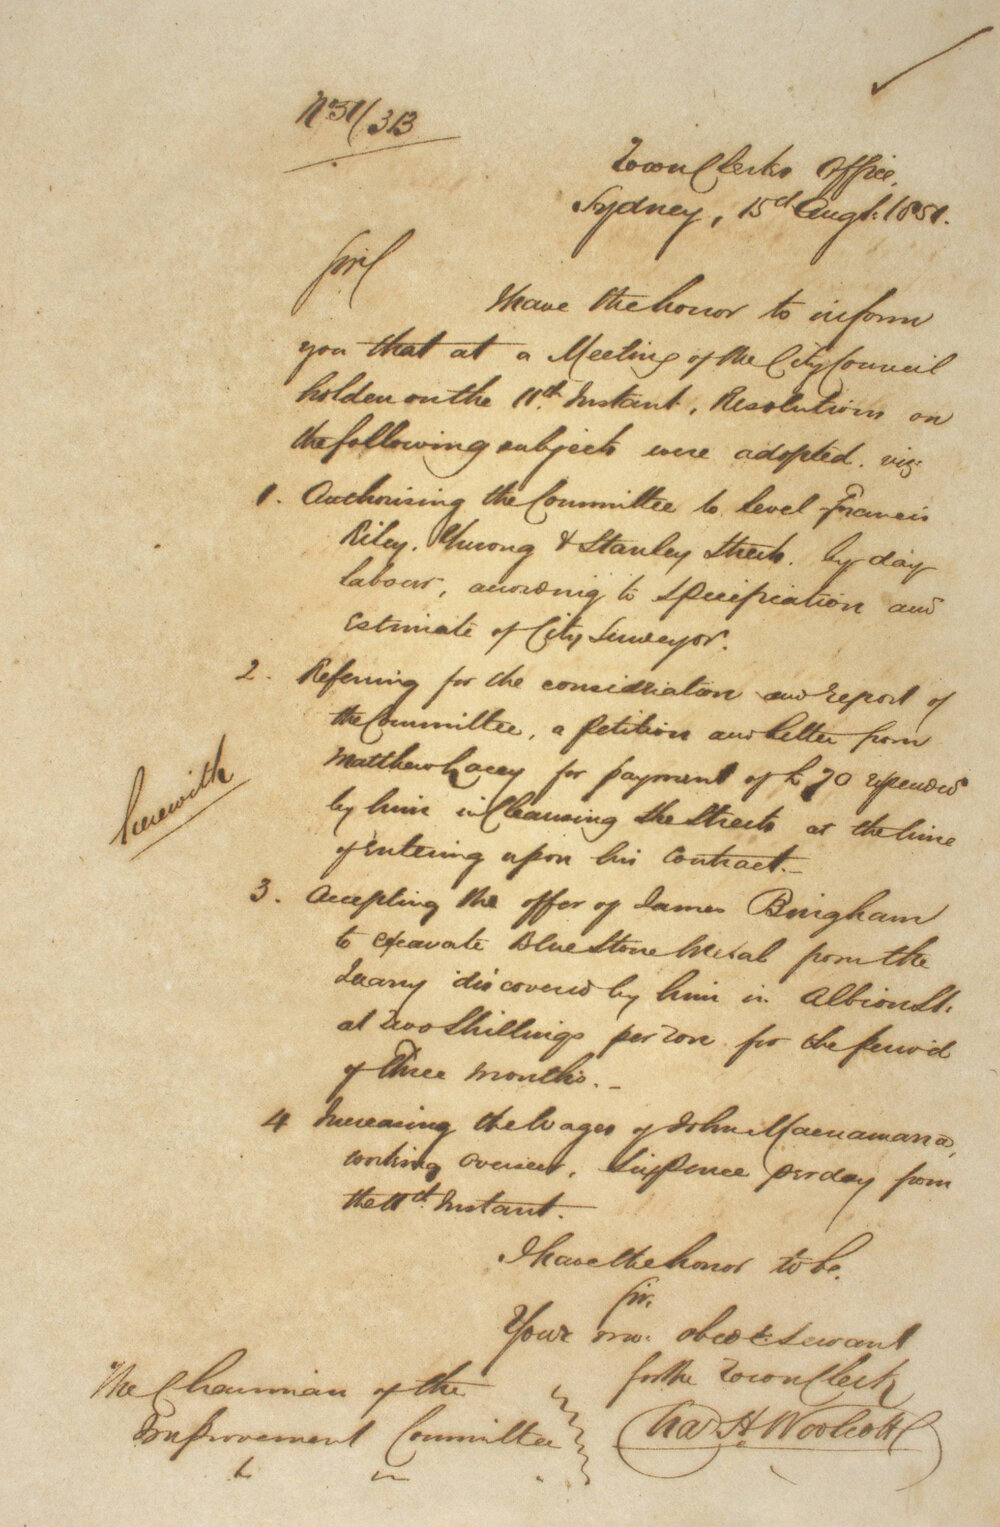 No 51/313
Town Clerks Office,
Sydney, 15d Augt. 1851.
Sir/
I have the honor to inform
you that at a Meeting of the City Council
holden on the 11th. Instant, Resolutions on
the following subjects were adopted. viz:
1. Authorising the Committee to level Francis
Riley, Yurong & Stanley Streets. by day
labour, according to Specification and
Estimate of City Surveyor.
2. Referring for the consideration and report of
the Committee, a Petition and letter from
Matthew Lacey for payment of £70 expended
by him in Cleansing the Streets at the time
of entering upon his Contract.-
herewith
3. Accepting the offer of James Bingham
to excavate Blue Stone Metal from the
Quarry discovered by him in Albion St.
at Two Shillings per Ton for the period
of Three Months. -
4 Increasing the Wages of John Macnamara,
working Overseer, Sixpence per day from
the 11th. Instant.
I have the honor to be.
Sir.
Your mo: obedt. Servant
for the Town Clerk
Chas H Woolcott
The Chairman of the
Improvement Committee